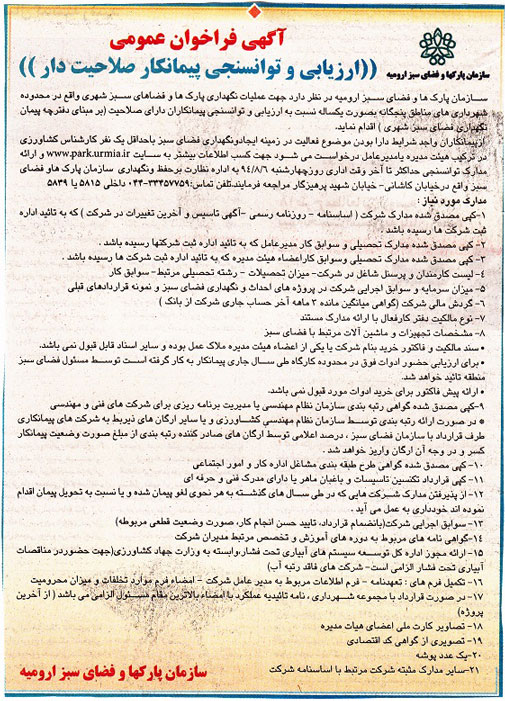 آگهی فراخوان عمومی
((ارزیابی و توانسنجی پیمانکار صلاحیت دار))
سازمان پارکها و فضای سبز ارومیه
سازمان پارک ها و فضای سبز ارومیه در نظر دارد جهت عملیات نگهداری پارک ها و فضاهای سبز شهری واقع در محدوده
شهرداری های مناطق پنجگانه بصورت یکساله نسبت به ارزیابی و توانسنجی پیمانکاران دارای صلاحیت (بر مبنای دفترچه پیمان
نگهداری فضای سبز شهری ) اقدام نماید.
ازپیمانکاران واجد شرایط دارا بودن موضوع فعالیت در زمینه ایجادونگهداری فضای سبز باحداقل یک نفر کارشناس کشاورزی
در ترکیب هیئت مدیره یامدیرعامل درخواست می شود جهت کسب اطلاعات بیشتر به سایت www.park.urmia.ir و ارائه
مدارک توانسنجی حداکثر تا آخر وقت اداری روزچهارشنبه ۹۴/۸/۶ به اداره نظارت برحفظ ونگهداری سازمان پارک هاو فضای
سبز واقع درخیابان کاشانی- خیابان شهید پرهیزگار مراجعه فرمایند.تلفن تماس:۳۳۴۵۷۷۵۹-۰۴۴ داخلی ۵۸۱۵ یا ۵۸۳۹
مدارک مورد نیاز :
۱-کپی مصدق شده مدارک شرکت ( اساسنامه - روزنامه رسمی -آگهی تاسیس و آخرین تغییرات در شرکت ) که به تائید اداره
ثبت شرکت ها رسیده باشد .
۲- کپی مصدق شده مدارک تحصیلی و سوابق کار مدیرعامل که به تائید اداره ثبت شرکتها رسیده باشد .
۳- کپی مصدق شده مدارک تحصیلی وسوابق کاراعضاء هیئت مدیره که به تائید اداره ثبت شرکت ها رسیده باشد .
۴- لیست کارمندان و پرسنل شاغل در شرکت- میزان تحصیلات - رشته تحصیلی مرتبط- سوابق کار
۵- میزان سرمایه و سوابق اجرایی شرکت در پروژه های احداث و نگهداری فضای سبز و نمونه قراردادهای قبلی
۶- گردش مالی شرکت (گواهی میانگین مانده ۳ ماهه آخر حساب جاری شرکت از بانک )
۷- نوع مالکیت دفتر کارفعال با ارائه مدارک مستند
۸- مشخصات تجهیزات و ماشین آلات مرتبط با فضای سبز
• سند مالکیت و فاکتور خرید بنام شرکت یا یکی از اعضاء هیئت مدیره ملاک عمل بوده و سایر اسناد قابل قبول نمی باشد.
• برای ارزیابی حضور ادوات فوق در محدوده کارگاه طی سال جاری پیمانکار به کار گرفته است توسط مسئول فضای سبز
منطقه تائید خواهد شد.
• ارائه پیش فاکتور برای خرید ادوات مورد قبول نمی باشد.
۹-کپی مصدق شده گواهی رتبه بندی سازمان نظام مهندسی یا مدیریت برنامه ریزی برای شرکت های فنی و مهندسی
• در صورت ارائه رتبه بندی توسط سازمان نظام مهندسی کشاورزی و یا سایر ارگان های ذیربط به شرکت های پیمانکاری
طرف قرارداد با سازمان فضای سبز ، درصد اعلامی توسط ارگان های صادر کننده رتبه بندی از مبلغ صورت وضعیت پیمانکار
کسر و در وجه آن ارگان واریز خواهد شد .
۱۰- کپی مصدق شده گواهی طرح طبقه بندی مشاغل اداره کار و امور اجتماعی
۱۱- کپی قرارداد تکنسین تاسیسات و باغبان ماهر یا دارای مدرک فنی و حرفه ای
۱۲- از پذیرفتن مدارک شرکت هایی که در طی سال های گذشته به هر نحوی لغو پیمان شده و یا نسبت به تحویل پیمان اقدام
نموده اند خودداری به عمل می آید .
۱۳- سوابق اجرایی شرکت(بانضمام قرارداد، تایید حسن انجام کار، صورت وضعیت قطعی مربوطه)
۱۴-گواهی نامه های مربوط به دوره های آموزش و تخصص مرتبط مدیران شرکت
۱۵- ارائه مجوز اداره کل توسعه سیستم های آبیاری تحت فشار،وابسته به وزارت جهاد کشاورزی(جهت حضوردر مناقصات
آبیاری تحت فشار الزامی است- شرکت های فاقد رتبه آب)
۱۶- تکمیل فرم های : تعهدنامه - فرم اطلاعات مربوط به مدیر عامل شرکت - امضاء فرم موارد تخلفات و میزان محرومیت
۱۷- در صورت قرارداد با مجموعه شهرداری ، نامه تائیدیه عملکرد با امضاء بالاترین مقام مسئول الزامی می باشد ( از آخرین
پروژه)
۱۸- تصاویر کارت ملی اعضای هیات مدیره
۱۹- تصویری از گواهی کد اقتصادی
۲۰-یک عدد پوشه
۲۱-سایر مدارک مثبته شرکت مرتبط با اساسنامه شرکت
سازمان پارکها و فضای سبز ارومیه